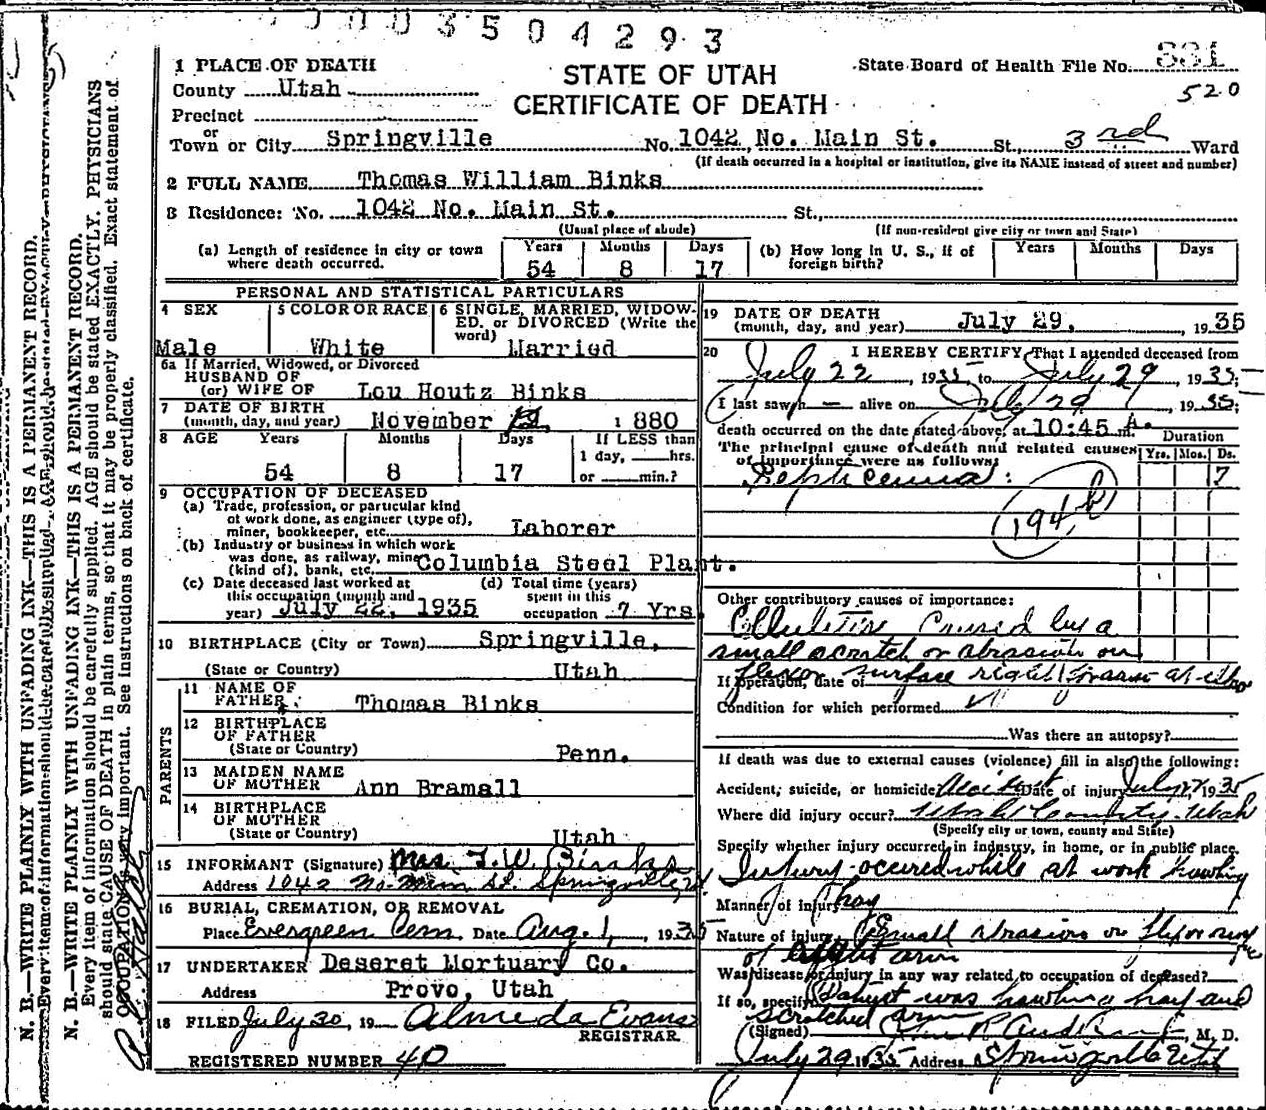 0003504293
1 PLACE OF DEATH
County Utah
Precinct
or
Town or City Springville
STATE OF UTAH
CERTIFICATE OF DEATH
State Board of Health File No. 331
520
No. 1042 No. Main St. St., 3rd Ward
(If death occurred in a hospital or institution, give its NAME instead of street and number)
2 FULL NAME Thomas William Binks
3 Residence: No. 1042 No. Main St. St.,
(Usual place of abode) (If non-resident give city or town and State)
(a) Length of residence in city or town where death occurred. Years 54 Months 8 Days 17
(b) How long in U. S., if of foreign birth? Years Months Days
PERSONAL AND STATISTICAL PARTICULARS
4 SEX Male
5 COLOR OR RACE White
6 SINGLE, MARRIED, WIDOWED, or DIVORCED (Write the word) Married
6a If Married, Widowed, or Divorced
HUSBAND OF
(or) WIFE OF Lou Houtz Binks
7 DATE OF BIRTH
(month, day, and year) November 1880
8 AGE Years 54 Months 8 Days 17
If LESS than
1 day, hrs.
or min.?
9 OCCUPATION OF DECEASED
(a) Trade, profession, or particular kind
of work done, as engineer (type of),
miner, bookkeeper, etc. Laborer
(b) Industry or business in which work
was done, as railway, mine
(kind of), bank, etc. Columbia Steel Plant.
(c) Date deceased last worked at
this occupation (month and
year) July 22, 1935
(d) Total time (years)
spent in this
occupation 7 Yrs.
10 BIRTHPLACE (City or Town) Springville,
(State or Country) Utah
PARENTS
11 NAME OF
FATHER Thomas Binks
12 BIRTHPLACE
OF FATHER
(State or Country) Penn.
13 MAIDEN NAME
OF MOTHER Ann Bramall
14 BIRTHPLACE
OF MOTHER
(State or Country) Utah
15 INFORMANT (Signature) Mrs. T. W. Binks
Address 1042 No. Main St. Springville
16 BURIAL, CREMATION, OR REMOVAL
Place Evergreen Cem. Date Aug. 1, 1935
17 UNDERTAKER Deseret Mortuary Co.
Address Provo, Utah
18 FILED July 30, 19 Almeda Evans
REGISTRAR
REGISTERED NUMBER 40
19 DATE OF DEATH
(month, day, and year) July 29, 1935
20 I HEREBY CERTIFY, That I attended deceased from
July 22, 1935 to July 29, 1935;
I last saw h alive on July 29, 1935;
death occurred on the date stated above, at 10:45 A. m.
The principal cause of death and related causes
of importance were as follows:
Duration
Yrs. Mos. Ds.
Septicemia: 7
194 b
Other contributory causes of importance:
Cellulitis Caused by a
small scratch or abrasion on
flexor surface right forearm at
If operation, date of
Condition for which performed
Was there an autopsy?
If death was due to external causes (violence) fill in also the following:
Accident, suicide, or homicide Accident Date of injury July 1935
Where did injury occur? Utah County, Utah
(Specify city or town, county and State)
Specify whether injury occurred in industry, in home, or in public place.
Injury occured while at work hawling
Manner of injury hay
Nature of injury Small abrasion on flexor
of right arm
Was disease or injury in any way related to occupation of deceased?
If so, specify Patient was hawling hay and
scratched arm
(Signed) M. D.
July 29 1935 Address Springville Utah
N. B.—WRITE PLAINLY WITH UNFADING INK—THIS IS A PERMANENT RECORD.
N. B.—WRITE PLAINLY WITH UNFADING INK—THIS IS A PERMANENT RECORD.
Every item of information should be carefully supplied. AGE should be stated EXACTLY. PHYSICIANS
should state CAUSE OF DEATH in plain terms, so that it may be properly classified. Exact statement of
OCCUPATION is very important. See instructions on back of certificate.